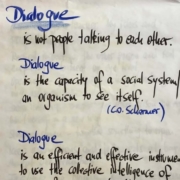 Dialogue
is not people talking to each other.
Dialogue
is the capacity of a social system/
an organism to see itself.
Dialogue
is an efficient and effective instrume
to use the collective intelligence of